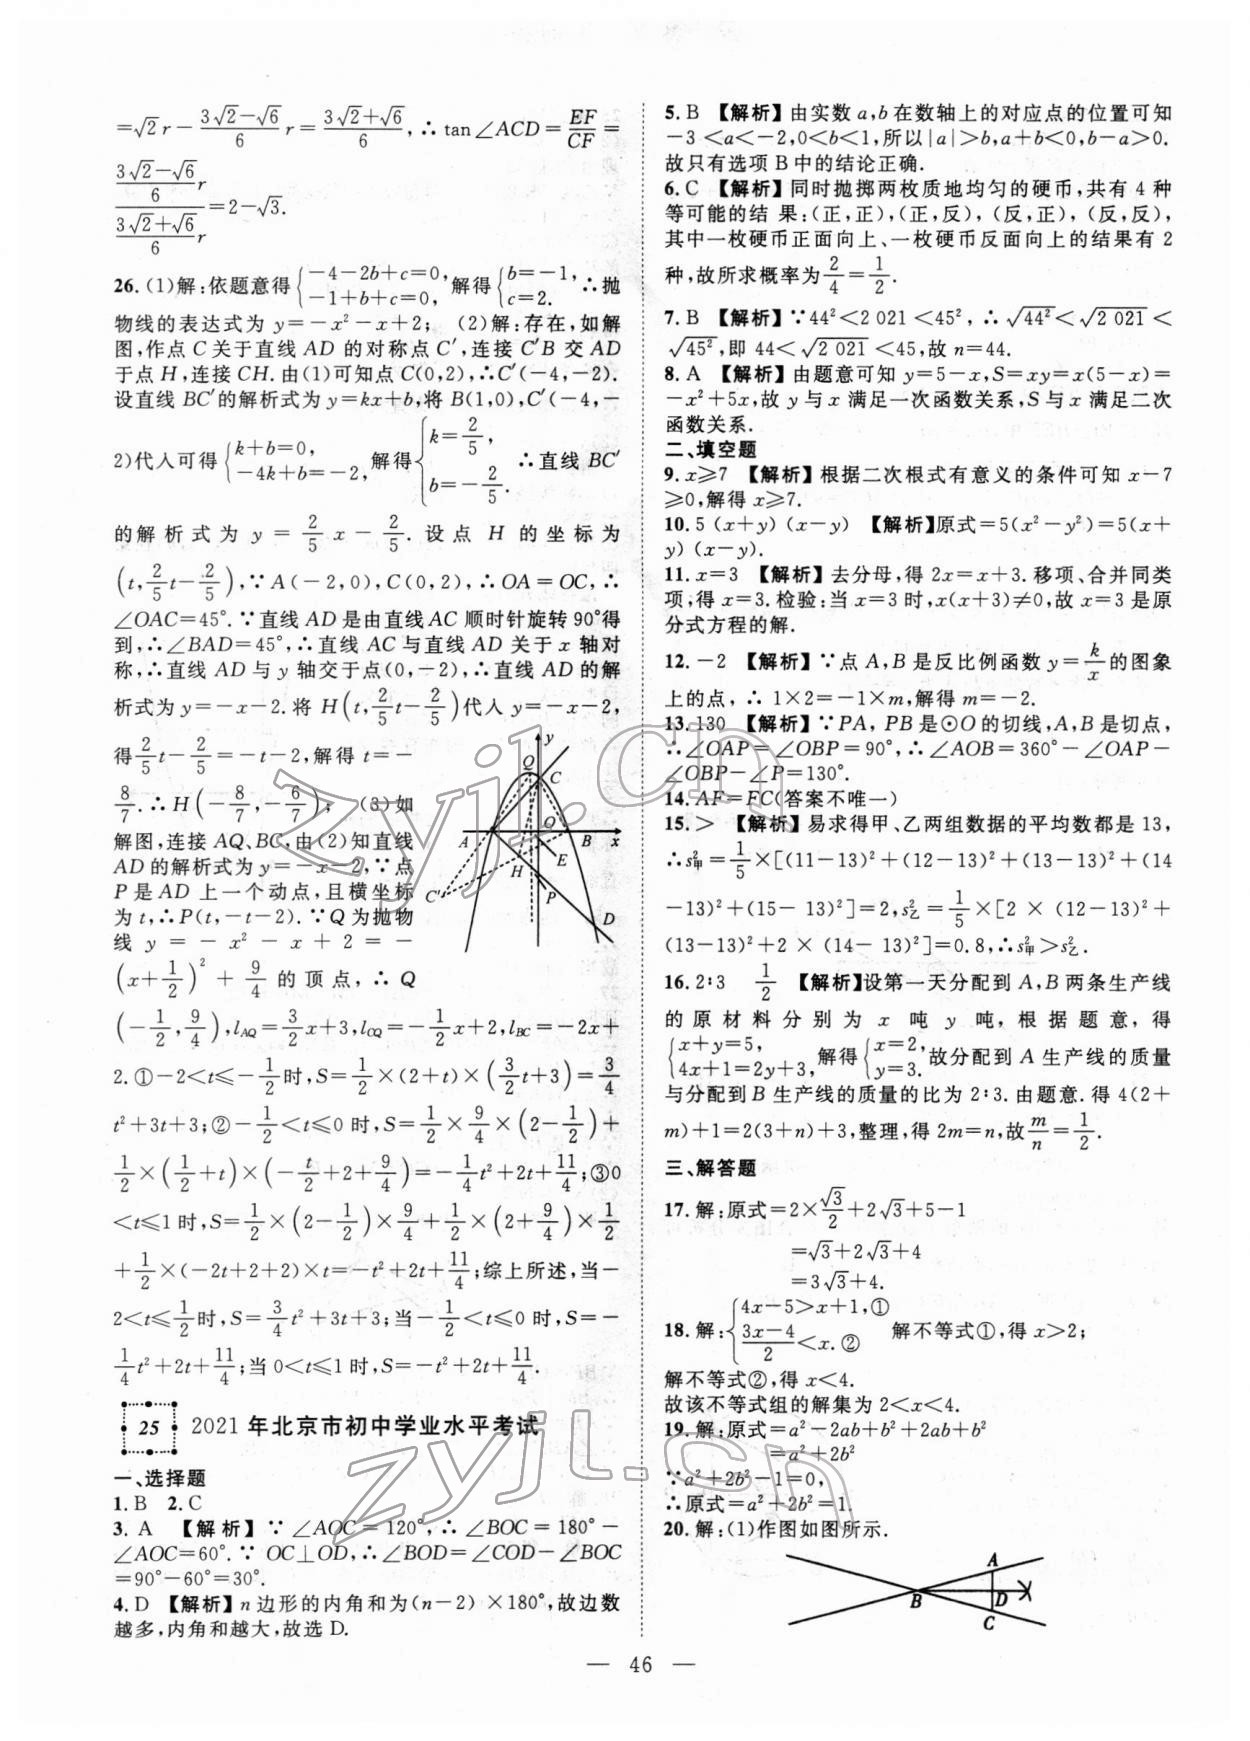 =√2r−(3√2−√6)/6 r=(3√2+√6)/6,∴tan∠ACD=EF/CF=
((3√2−√6)/6 r)/((3√2+√6)/6 r)=2−√3.
26.(1)解:依题意得{−4−2b+c=0, −1+b+c=0, 解得{b=−1, c=2. ∴抛
物线的表达式为 y=−x²−x+2; (2)解:存在,如解
图,作点 C 关于直线 AD 的对称点 C′,连接 C′B 交 AD
于点 H,连接 CH.由(1)可知点 C(0,2),∴C′(−4,−2).
设直线 BC′的解析式为 y=kx+b,将 B(1,0),C′(−4,−
2)代人可得{k+b=0, −4k+b=−2, 解得{k=2/5, b=−2/5. ∴直线 BC′
的解析式为 y=2/5 x−2/5.设点 H 的坐标为
(t,2/5 t−2/5),∵A(−2,0),C(0,2),∴OA=OC,∴
∠OAC=45°.∵直线 AD 是由直线 AC 顺时针旋转 90°得
到,∴∠BAD=45°,∴直线 AC 与直线 AD 关于 x 轴对
称,∴直线 AD 与 y 轴交于点(0,−2),∴直线 AD 的解
析式为 y=−x−2.将 H(t,2/5 t−2/5)代人 y=−x−2,
得2/5 t−2/5=−t−2,解得 t=−
8/7.∴H(−8/7,−6/7); (3)如
解图,连接 AQ,BC,由(2)知直线
AD 的解析式为 y=−x−2,∵点
P 是 AD 上一个动点,且横坐标
为 t,∴P(t,−t−2).∵Q 为抛物
线 y=−x²−x+2=−
(x+1/2)²+9/4 的顶点,∴Q
(−1/2,9/4),l_AQ=3/2 x+3,l_CQ=−1/2 x+2,l_BC=−2x+
2.①−2<t≤−1/2时,S=1/2×(2+t)×(3/2 t+3)=3/4
t²+3t+3;②−1/2<t≤0 时,S=1/2×9/4×(2−1/2)+
1/2×(1/2+t)×(−t/2+2+9/4)=−1/4 t²+2t+11/4;③0
<t≤1 时,S=1/2×(2−1/2)×9/4+1/2×(2+9/4)×1/2
+1/2×(−2t+2+2)×t=−t²+2t+11/4;综上所述,当−
2<t≤1/2时,S=3/4 t²+3t+3;当−1/2<t≤0 时,S=−
1/4 t²+2t+11/4;当 0<t≤1 时,S=−t²+2t+11/4.
y
Q
C
A
O
B
x
E
H
C′
P
D
25 2021 年北京市初中学业水平考试
一、选择题
1.B 2.C
3.A 【解析】∵∠AOC=120°,∴∠BOC=180°−
∠AOC=60°.∵OC⊥OD,∴∠BOD=∠COD−∠BOC
=90°−60°=30°.
4.D 【解析】n 边形的内角和为(n−2)×180°,故边数
越多,内角和越大,故选 D.
5.B 【解析】由实数 a,b 在数轴上的对应点的位置可知
−3<a<−2,0<b<1,所以|a|>b,a+b<0,b−a>0.
故只有选项 B 中的结论正确.
6.C 【解析】同时抛掷两枚质地均匀的硬币,共有 4 种
等可能的结果:(正,正),(正,反),(反,正),(反,反),
其中一枚硬币正面向上、一枚硬币反面向上的结果有 2
种,故所求概率为2/4=1/2.
7.B 【解析】∵44²<2 021<45²,∴√44²<√2 021<
√45²,即 44<√2 021<45,故 n=44.
8.A 【解析】由题意可知 y=5−x,S=xy=x(5−x)=
−x²+5x,故 y 与 x 满足一次函数关系,S 与 x 满足二次
函数关系.
二、填空题
9.x≥7 【解析】根据二次根式有意义的条件可知 x−7
≥0,解得 x≥7.
10.5(x+y)(x−y) 【解析】原式=5(x²−y²)=5(x+
y)(x−y).
11.x=3 【解析】去分母,得 2x=x+3.移项、合并同类
项,得 x=3.检验:当 x=3 时,x(x+3)≠0,故 x=3 是原
分式方程的解.
12.−2 【解析】∵点 A,B 是反比例函数 y=k/x的图象
上的点,∴1×2=−1×m,解得 m=−2.
13.130 【解析】∵PA,PB 是⊙O 的切线,A,B 是切点,
∴∠OAP=∠OBP=90°,∴∠AOB=360°−∠OAP−
∠OBP−∠P=130°.
14.AF=FC(答案不唯一)
15.> 【解析】易求得甲、乙两组数据的平均数都是 13,
∴s²甲=1/5×[(11−13)²+(12−13)²+(13−13)²+(14
−13)²+(15−13)²]=2,s²乙=1/5×[2×(12−13)²+
(13−13)²+2×(14−13)²]=0.8,∴s²甲>s²乙.
16.2∶3 1/2 【解析】设第一天分配到 A,B 两条生产线
的原材料分别为 x 吨 y 吨,根据题意,得
{x+y=5, 4x+1=2y+3, 解得{x=2, y=3. 故分配到 A 生产线的质量
与分配到 B 生产线的质量的比为 2∶3.由题意.得 4(2+
m)+1=2(3+n)+3,整理,得 2m=n,故m/n=1/2.
三、解答题
17.解:原式=2×√3/2+2√3+5−1
=√3+2√3+4
=3√3+4.
18.解:{4x−5>x+1,① (3x−4)/2<x.② 解不等式①,得 x>2;
解不等式②,得 x<4.
故该不等式组的解集为 2<x<4.
19.解:原式=a²−2ab+b²+2ab+b²
=a²+2b²
∵a²+2b²−1=0,
∴原式=a²+2b²=1.
20.解:(1)作图如图所示.
A
B
D
C
— 46 —
zyjl.cn
zyjl.cn